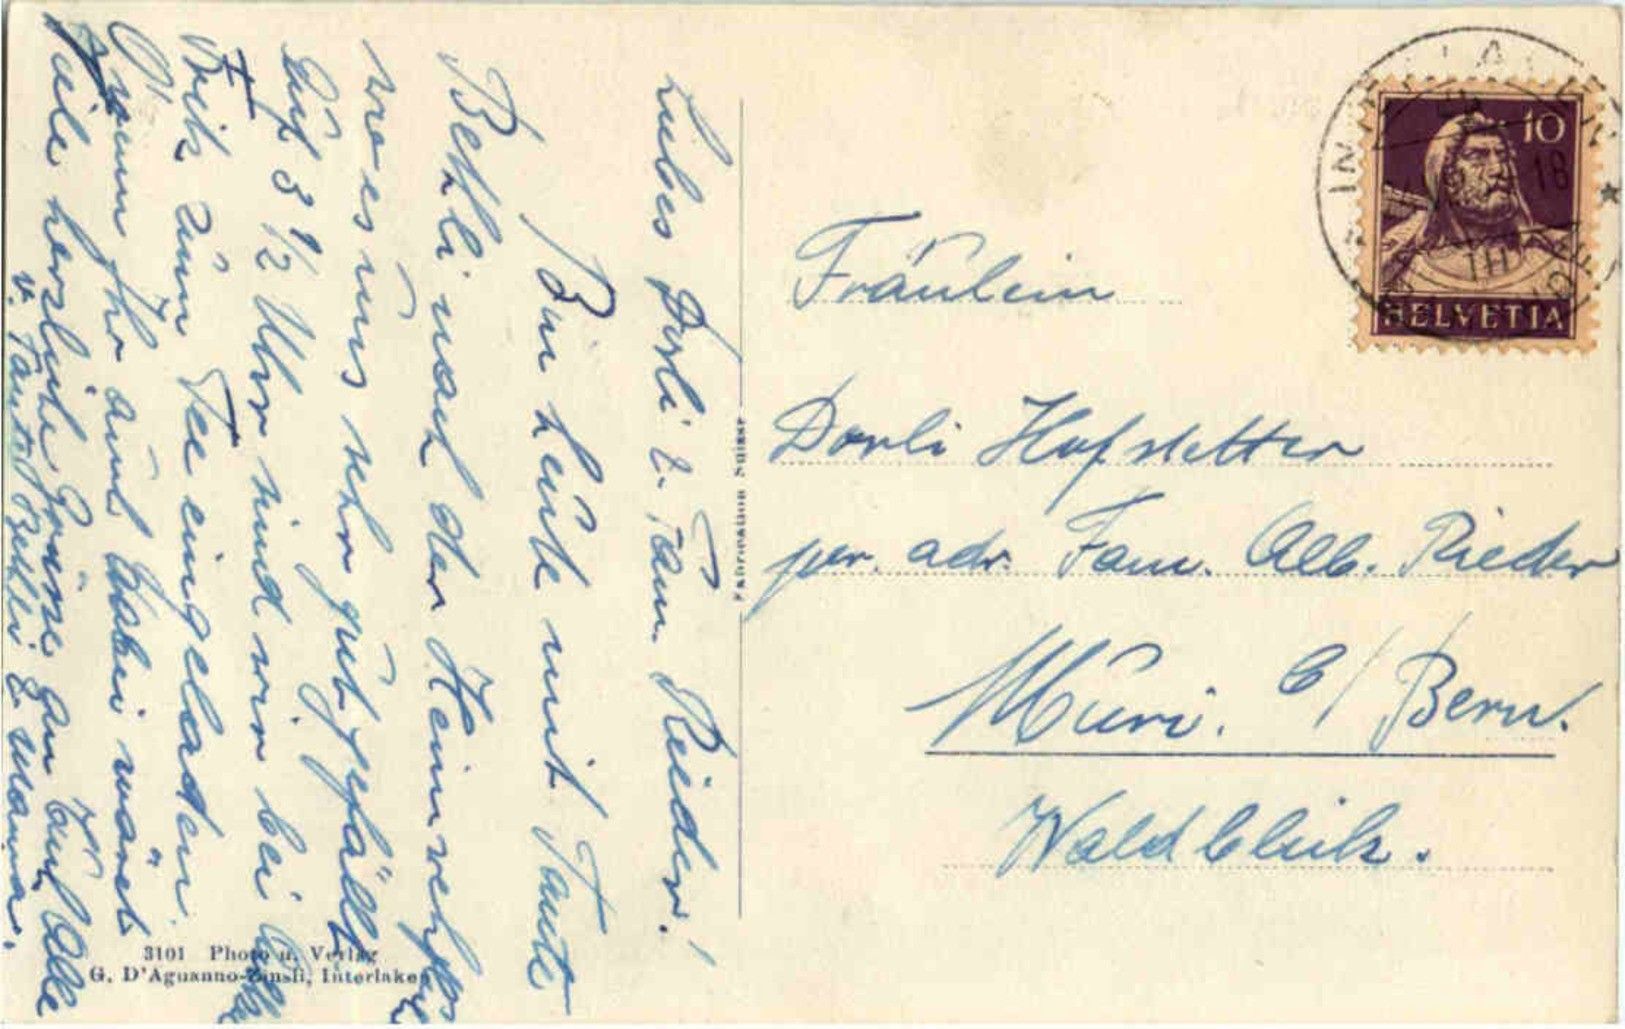 Liebes Dorli & Fam. Rieder!
Bin heute mit Tante
Bethli nach der Heimwehfluh
wo es uns sehr gut gefällt.
Auf 3 ½ Uhr sind wir bei
Beth zum Tee eingeladen.
O wenn Ihr auch dabei wäret
Viele herzliche Grüsse an Euch Alle
v. Tante Bethli & Mama.
Fräulein
Dorli Hofstetter
per. adr. Fam. Alb. Rieder
Muri. b/Bern.
Waldblick.
Fabrication Suisse
3101 Photo u. Verlag
G. D'Aguanno-Zinsli, Interlaken
INTERLAKEN
18
10
HELVETIA